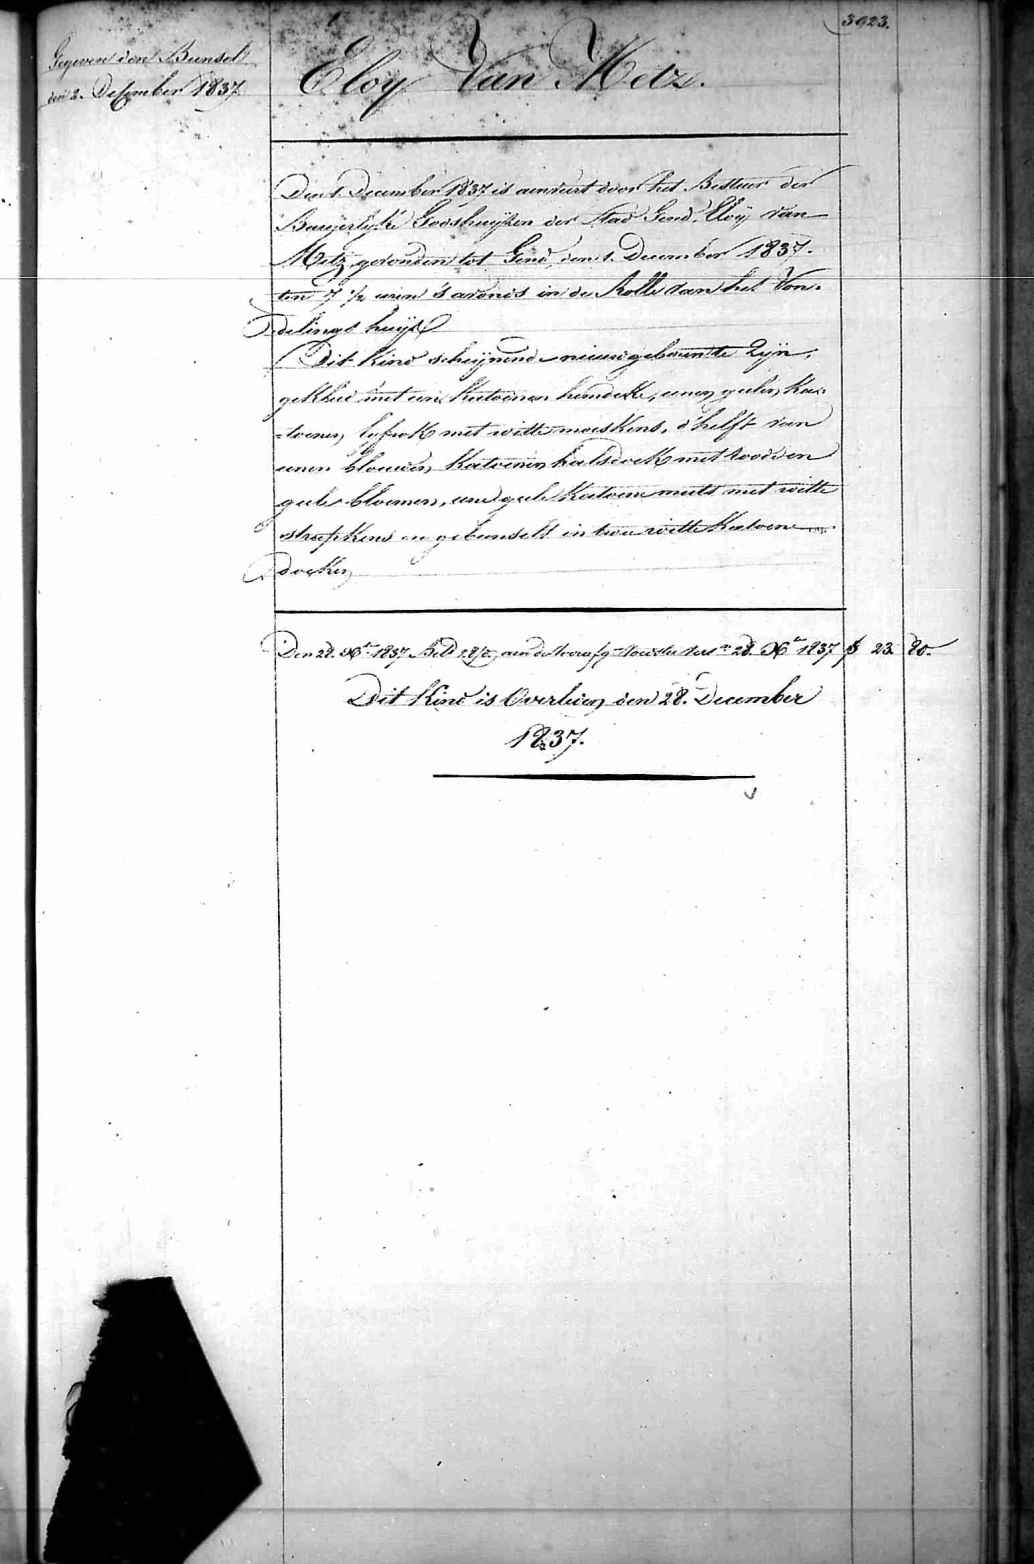 3923.
Gegeven den Bunsel
den 2. December 1837.
Eloy Van Metz.
Den 1. December 1837 is aenveirt door het Bestuer der
Burgerlyke Godshuyzen der Stad Gend, Eloÿ van
Metz gevonden tot Gend, den 1. December 1837.
ten 7 ½ uren 's avonds in de Rolle van het Von-
delings huys
Dit Kind schynende nieuwgeboren te Zyn,
gekleed met een Katoenen hemdeke, eenen geelen Ka-
=toenen lyfrok met witte moeskens, d'helft van
eenen blauwen Katoenen halsdoek met roode en
geele bloemen, eene geele Katoene muts met witte
streepkens en gebunselt in twee witte Katoene
doeken
Den 28. Xber 1837 Betd aen de 28 Xber 1837 f 23. 80.
Dit Kind is Overleden den 28. December
1837.